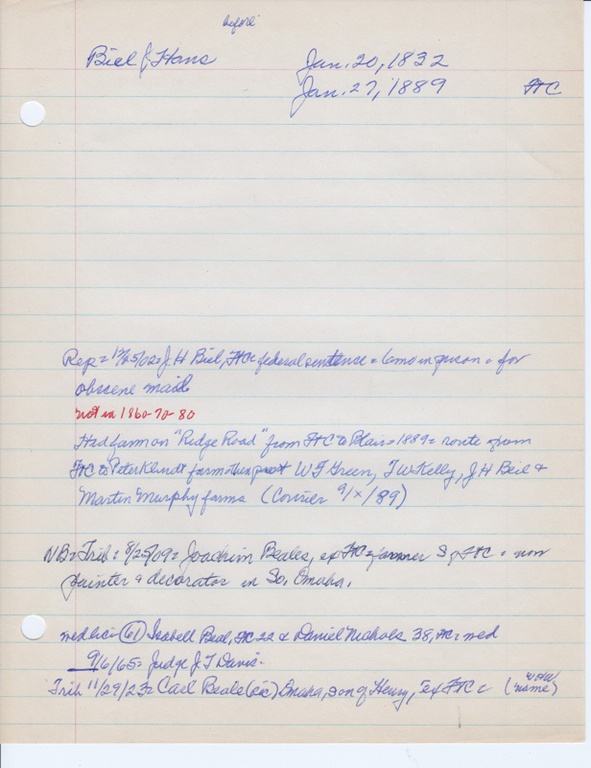 before
Biel J. Hans Jan. 20, 1832
Jan. 27, 1889 FtC
Rep = 12/25/02 = J. H Biel, FtC = federal sentence = 6 mo in prison = for
obscene mail
not in 1860-70-80
Had farm on "Ridge Road" from FtC to Blair = 1889 = route from
FtC to Peter Klindt farm then past W F Green, T W Kelly, J H Beil &
Martin Murphy farms (Courier 9/x/89)
NB = Trib = 8/25/09 = Joachim Beales, ex FtC = farmer S of FtC = now
painter & decorator in So. Omaha.
med lic = (61) Isabell Beal, FtC 22 & Daniel Nichols 38, FtC = med
9/6/65 = Judge J T Davis.
Trib 11/29/23 = Carl Beale (sic) Omaha, son of Henry, ex FtC = (
name)